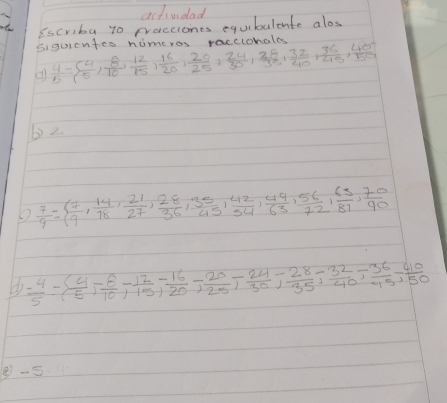 actividad
Escriba 10 fracciones equibalente alos
siguientes números raccionales
a) 4/5 = {4/5, 8/10, 12/15, 16/20, 20/25, 24/30, 28/35, 32/40, 36/45, 40/50
b) 2
c) 7/9 = {7/9, 14/18, 21/27, 28/36, 35/45, 42/54, 49/63, 56/72, 63/81, 70/90
d) -4/5 = {4/5, -8/10, -12/15, -16/20, -20/25, -24/30, -28/35, -32/40, -36/45, 40/50
e) -5